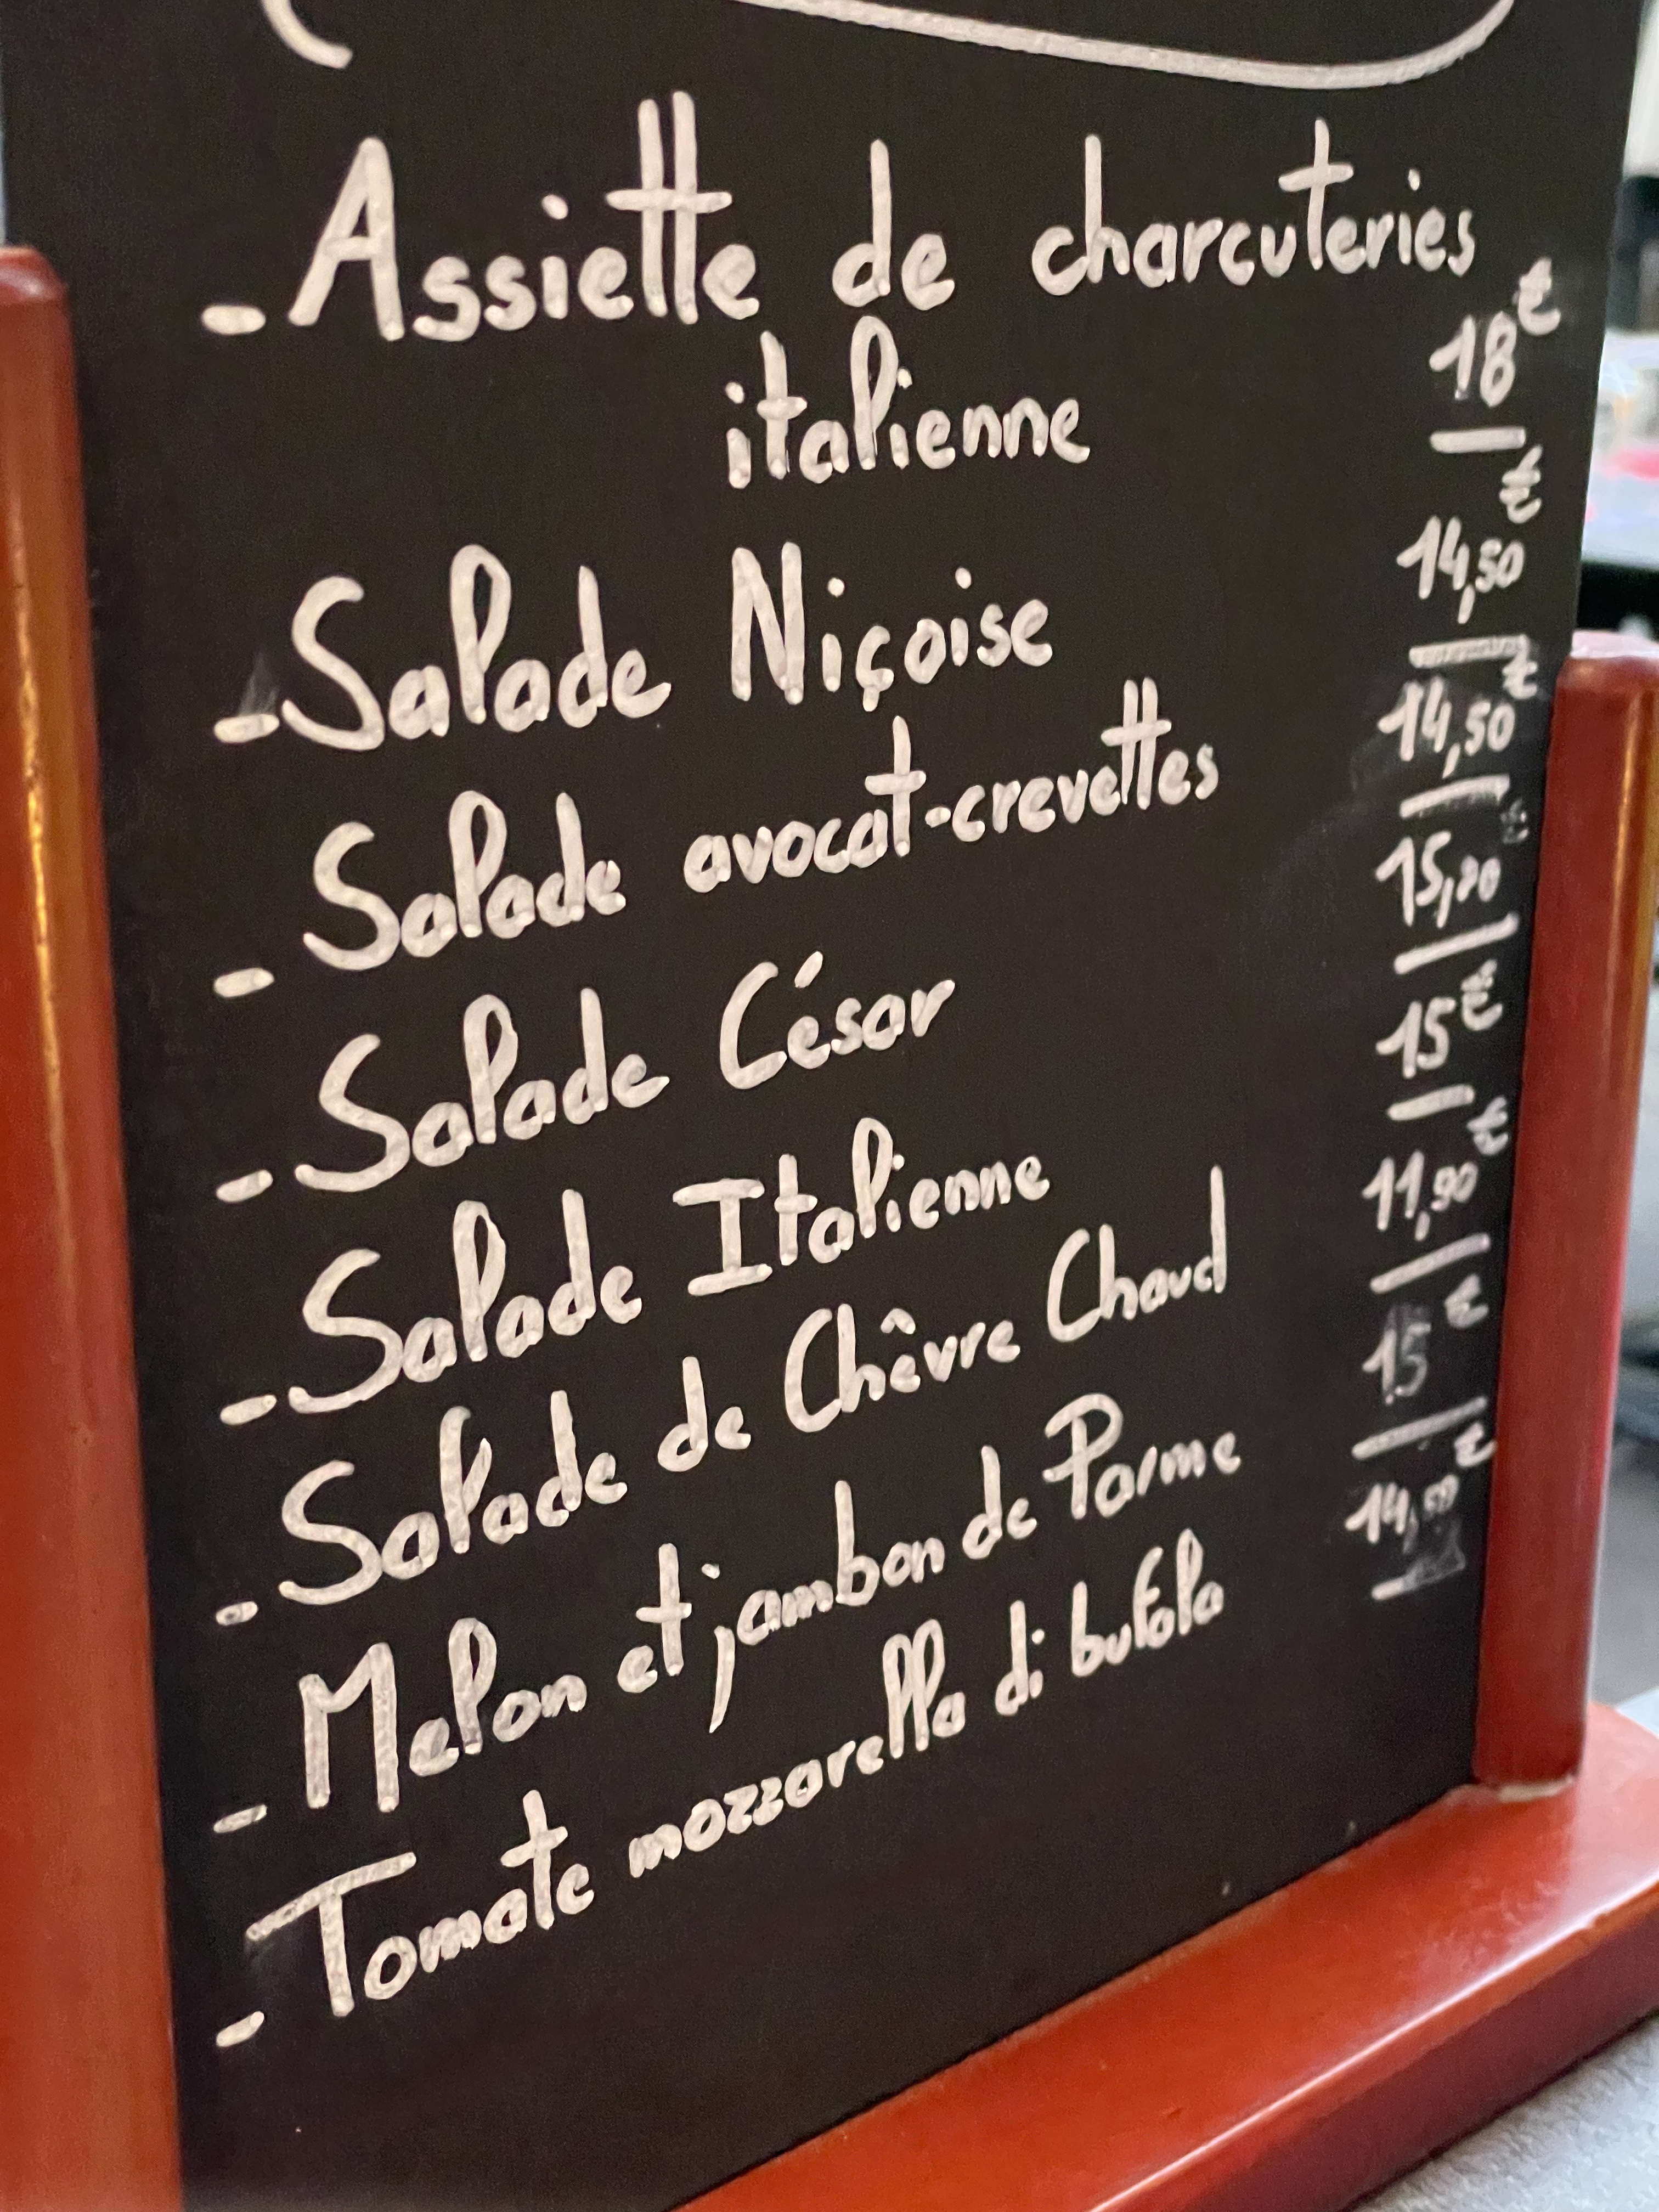 - Assiette de charcuteries
italienne 18€
- Salade Niçoise 14,50€
- Salade avocat-crevettes 14,50€
- Salade César
- Salade Italienne 15€
- Salade de Chêvre Chaud 11,90€
- Melon et jambon de Parme 15€
- Tomate mozzarella di bufola 14,50€